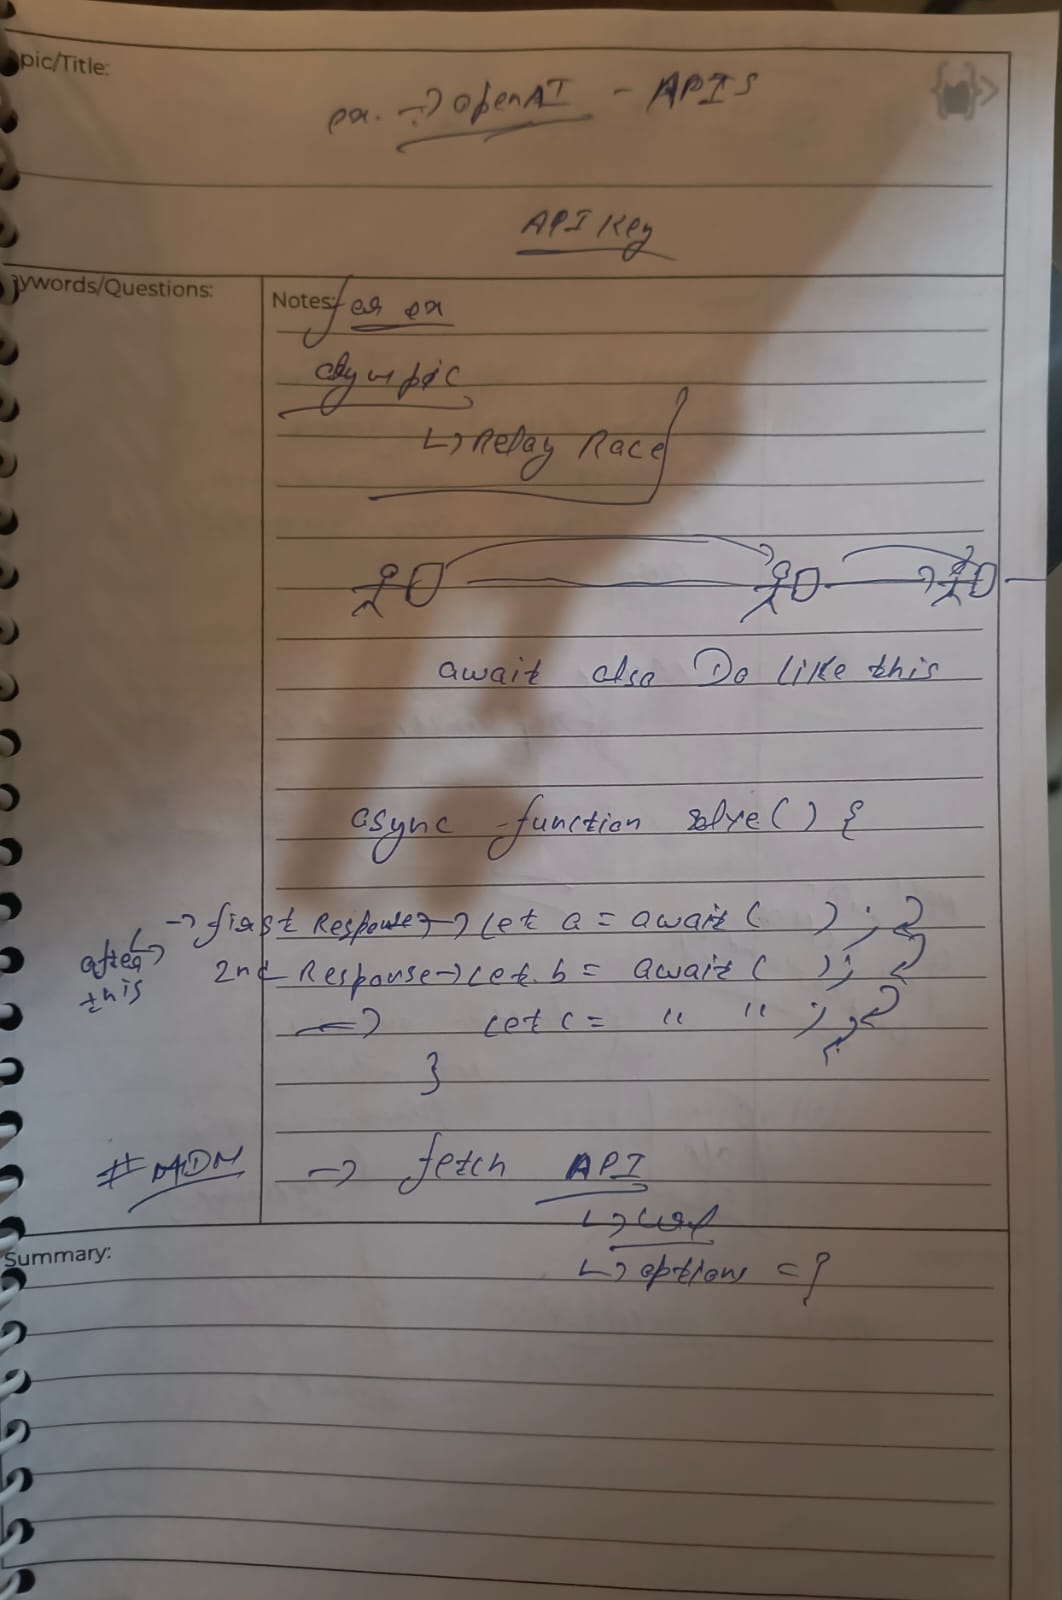 pic/Title:
ex. → openAI - APIS
API Key
ywords/Questions:
Notes:
for ex
olympic
↳ Relay Race
await also Do like this
async function solve() {
→ first Response → let a = await ( );
after this
2nd Response → let b = await ( );
→ let c = " " ;
}
# MDN → fetch API
↳ url
↳ options = {
Summary: